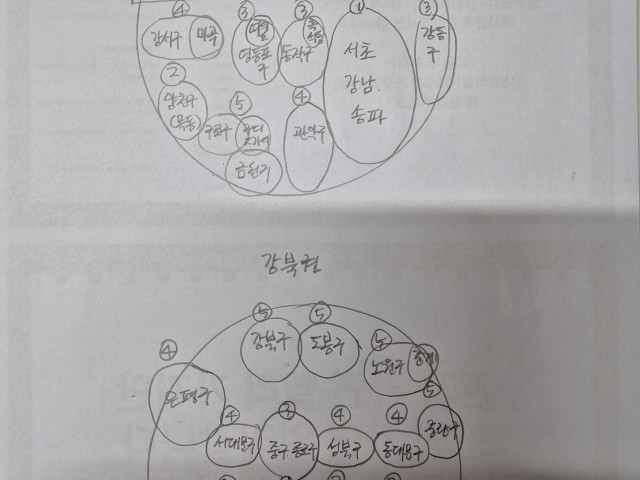 ④ ③ ③ ① ③
강서구 마곡
여의도
영등포구
흑석동
동작구
서초
강남.
송파
강동구
②
양천구
(목동)
⑤
구로구
가디
④
관악구
금천구
강북권
⑤ ⑤
강북구 도봉구
⑤
노원구 중계
④
은평구
⑤
중랑구
④ ③ ④ ④
서대문구 중구.종로구 성북구 동대문구